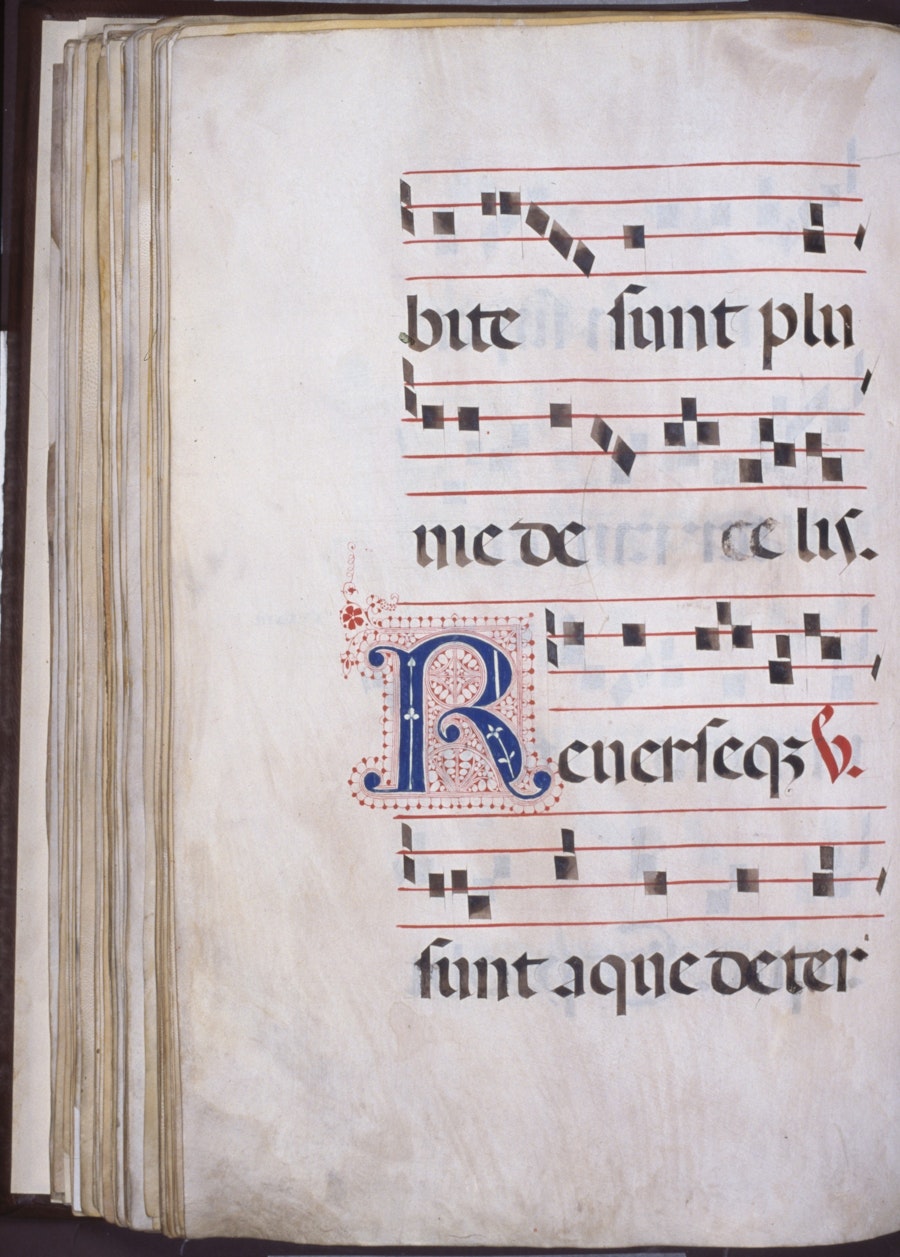 bite sunt plu
uie de ce lis.
Reuerseqꝫ ℣.
sunt aque de ter